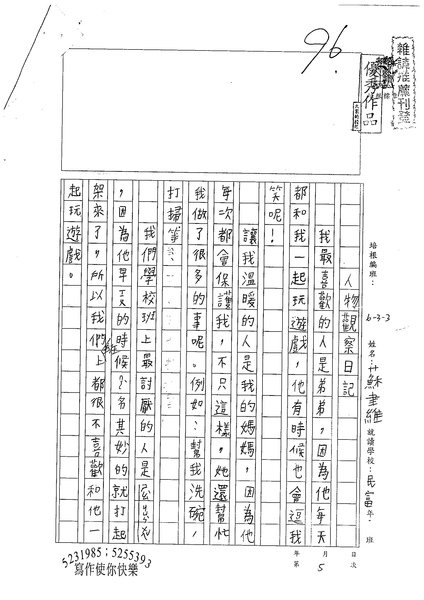 96.
雜誌推薦刊登
優秀作品
培根編班：
6-3-3
姓名：蘇聿維
就讀學校：民富
年：
班
人物觀察日記
我最喜歡的人是弟弟，因為他每天
都和我一起玩遊戲，他有時候也會逗我
笑呢！
讓我溫暖的人是我的媽媽，因為他
每次都會保護我，不只這樣，她還幫忙
我做了很多的事呢。例如：幫我洗碗，
打掃等……
我們學校班上最討厭的人是
，因為他早上的時候？名其妙的就打起
架來了，所以我們班上都很不喜歡和他一
起玩遊戲。
年 月 日 次
第 5
5231985；5255393
寫作使你快樂